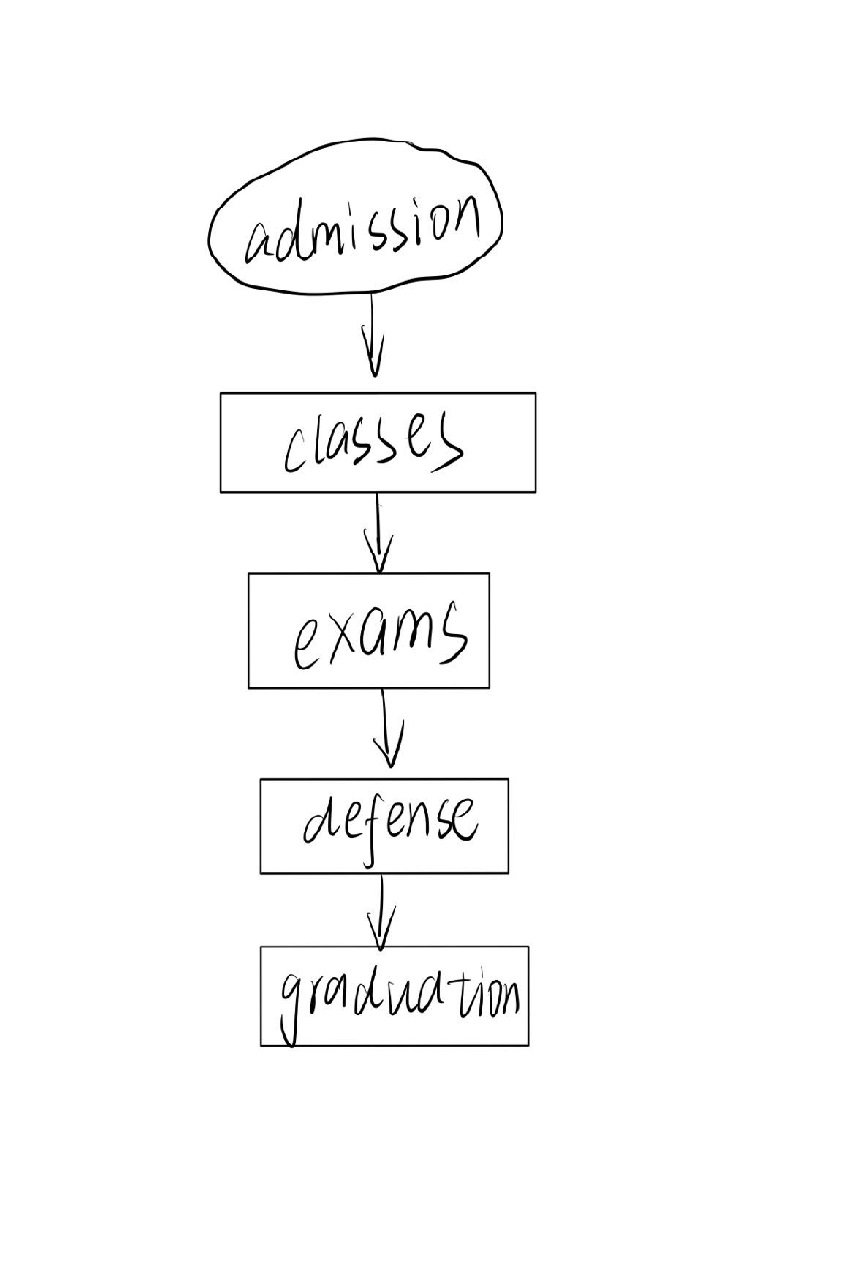 admission
classes
exams
defense
graduation